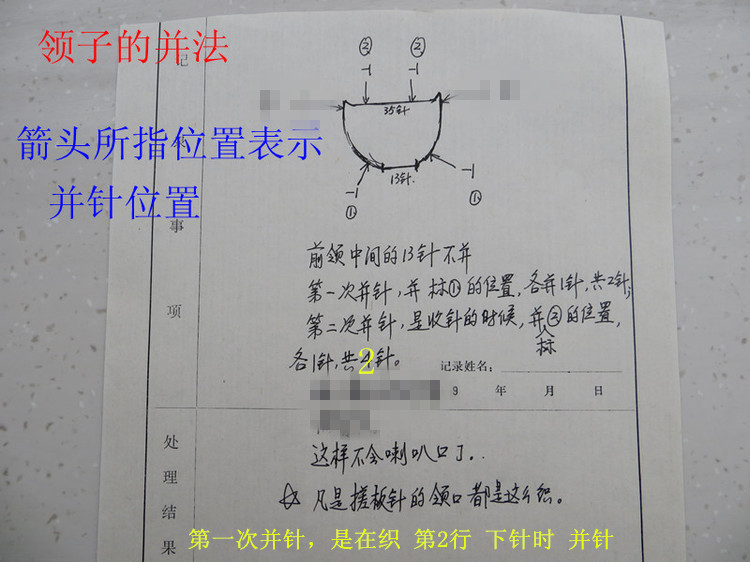 领子的并法
记
②
②
-1
-1
35针
箭头所指位置表示
并针位置
13针.
-1
-1
①
①
事
前领中间的13针不并
第一次并针,并标①的位置,各并1针,共2针;
项
第二次并针,是收针的时候,并标②的位置,
各1针,共2针。
记录姓名:
9 年 月 日
处
理
结
果
这样不会喇叭口了..
☆ 凡是搓板针的领口都是这么织。
第一次并针,是在织 第2行 下针时 并针